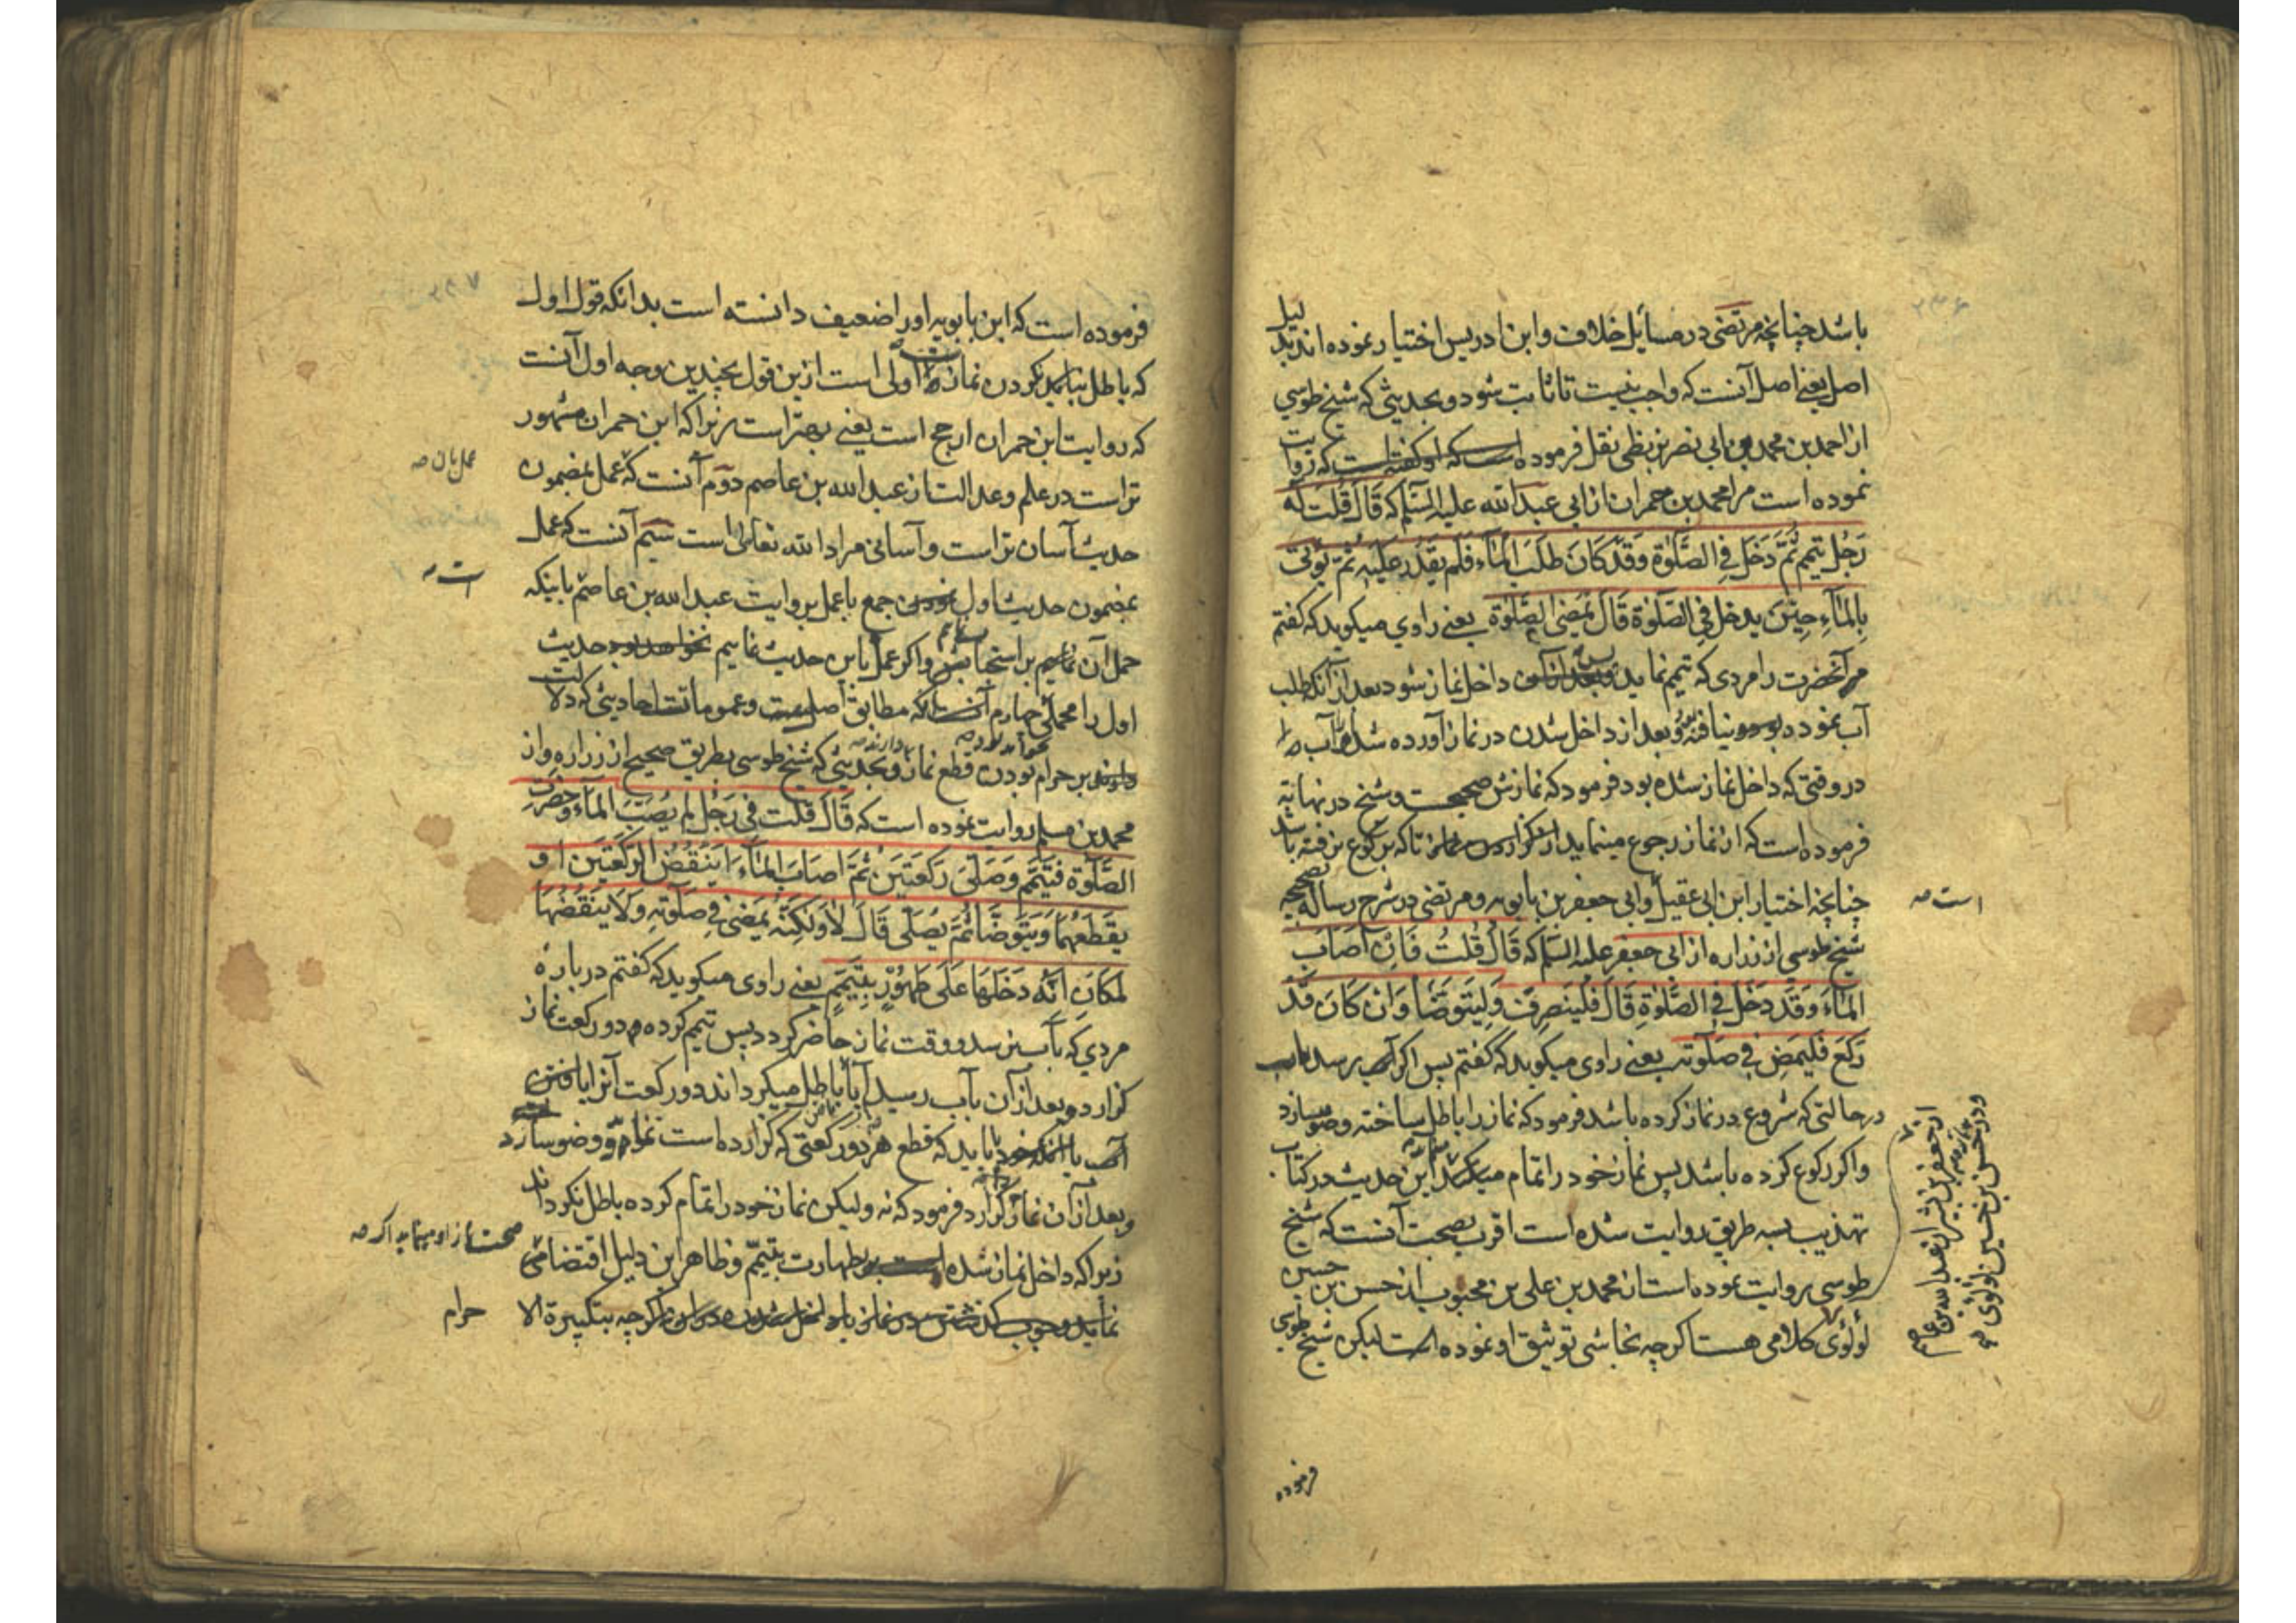 باشد چنانچه مرتضی در مسایل خلاف و ابن ادریس اختیار نموده اند بدلیل
اصل یعنی اصل آنست که واجب نیست تا ثابت شود و بحدیثی که شیخ طوسی
از احمد بن محمد بن ابی نصر بزنطی نقل فرموده است که او گفته است که روایت
نموده است مرا محمد بن حمران از ابی عبد الله علیه السلام که قَالَ قُلْتُ لَهُ
رَجُلٌ تَیَمَّمَ ثُمَّ دَخَلَ فِی الصَّلٰوةِ وَقَدْ کَانَ طَلَبَ الْمَآءَ فَلَمْ یَقْدِرْ عَلَیْهِ ثُمَّ یُوْتٰی
بِالْمَآءِ حِیْنَ یَدْخُلُ فِی الصَّلٰوةِ قَالَ یَمْضِی الصَّلٰوةَ یعنی راوی میکوید که کفتم
مر آنحضرت را مردی که تیمم نماید پس داخل نماز شود بعد از آنکه طلب
آب نموده بود و نیافته و بعد از داخل شدن در نماز آورده شد آب
در وقتی که داخل نماز شده بود فرمود که نمازش صحیحست و شیخ در نهایه
فرموده است که از نماز رجوع مینماید تا که برکوع نرفته باشد
چنانچه اختیار ابن ابی عقیل و ابی جعفر بن بابویه و مرتضی در شرح رساله بصحیحه
است صه
شیخ طوسی از زراره از ابی جعفر علیه السلام که قَالَ قُلْتُ فَاِنْ اَصَابَ
الْمَآءَ وَقَدْ دَخَلَ فِی الصَّلٰوةِ قَالَ فَلْیَنْصَرِفْ وَلْیَتَوَضَّا وَاِنْ کَانَ قَدْ
رَکَعَ فَلْیَمْضِ فِی صَلٰوتِهِ یعنی راوی میکوید که کفتم پس اکر آب برسد
در حالتی که شروع در نماز کرده باشد فرمود که نماز را باطل ساخته وضو سازد
و اکر رکوع کرده باشد پس نماز خود را تمام میکند این حدیث در کتاب
تهذیب بسه طریق روایت شده است اقرب بصحت آنست که شیخ
طوسی روایت نموده است از محمد بن علی بن محبوب از حسن بن حسین
لولوی کلامی هست اکرچه نجاشی توثیق او نموده است لیکن شیخ طوسی
از جعفر بن بشیر از عبد الله بن عاصم
و در حسن بن حسین لولوی صه
فرموده
فرموده است که ابن بابویه او را ضعیف دانسته است بدانکه قول اول
که باطل نکردن نماز است اولی است ازین قول بچندین وجه اول آنست
که روایت ابن حمران ارجح است یعنی بهتر است زیرا که ابن حمران مشهور
تر است در علم و عدالت از عبد الله بن عاصم دوم آنست که عمل بمضمون
عمل بان صه
حدیث آسان تر است و آسانی مراد الله تعالی است سیم آنست که عمل
بمضمون حدیث اول جمع با عمل بروایت عبد الله بن عاصم باینکه
است صه
حمل آن نماییم بر استحباب و اکر عمل باین حدیث نماییم نخواهد بود حدیث
اول را محملی چهارم آنست که مطابق اصلست و عمومات احادیثی که دلالت
دارند بر حرام بودن قطع نماز و بحدیثی که شیخ طوسی بطریق صحیح از زراره و از
محمد بن مسلم روایت نموده است که قَالَ قُلْتُ فِی رَجُلٍ لَمْ یُصِبِ الْمَآءَ وَحَضَرَتِ
الصَّلٰوةُ فَتَیَمَّمَ وَصَلّٰی رَکْعَتَیْنِ ثُمَّ اَصَابَ الْمَآءَ اَیَنْقُضُ الرَّکْعَتَیْنِ اَوْ
یَقْطَعُهُمَا وَیَتَوَضَّا ثُمَّ یُصَلِّی قَالَ لَا وَلٰکِنَّهُ یَمْضِی فِی صَلٰوتِهِ وَلَا یَنْقُضُهَا
لِمَکَانِ اَنَّهُ دَخَلَهَا عَلٰی طَهُوْرٍ بِتَیَمُّمٍ یعنی راوی میکوید که کفتم درباره
مردی که بآب نرسد و وقت نماز حاضر کردد پس تیمم کرده دو رکعت نماز
کزارد و بعد از آن بآب رسید آیا باطل میکرداند دو رکعت آنرا یافتن
آب یا باید که قطع هر دو رکعتی که کزارده است نماید و وضو سازد
و بعد از آن نماز کزارد فرمود که نه ولیکن نماز خود را تمام کرده باطل نکرداند
زیرا که داخل نماز شده است بر طهارت بتیمم و ظاهر این دلیل اقتضای
صحت نماز او مینماید اکر صه
نماید وجوب در نماز اکرچه بتکبیرة الا
حرام